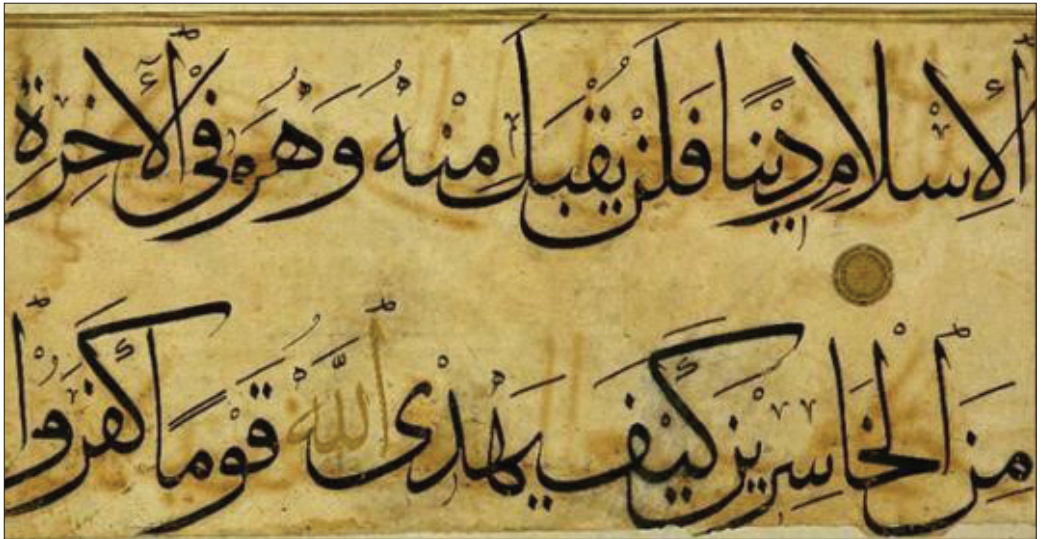 ٱلْإِسْلَامِ دِينًا فَلَنْ يُقْبَلَ مِنْهُ وَهُوَ فِي ٱلْآخِرَةِ
مِنَ ٱلْخَاسِرِينَ كَيْفَ يَهْدِى ٱللَّهُ قَوْمًا كَفَرُوا